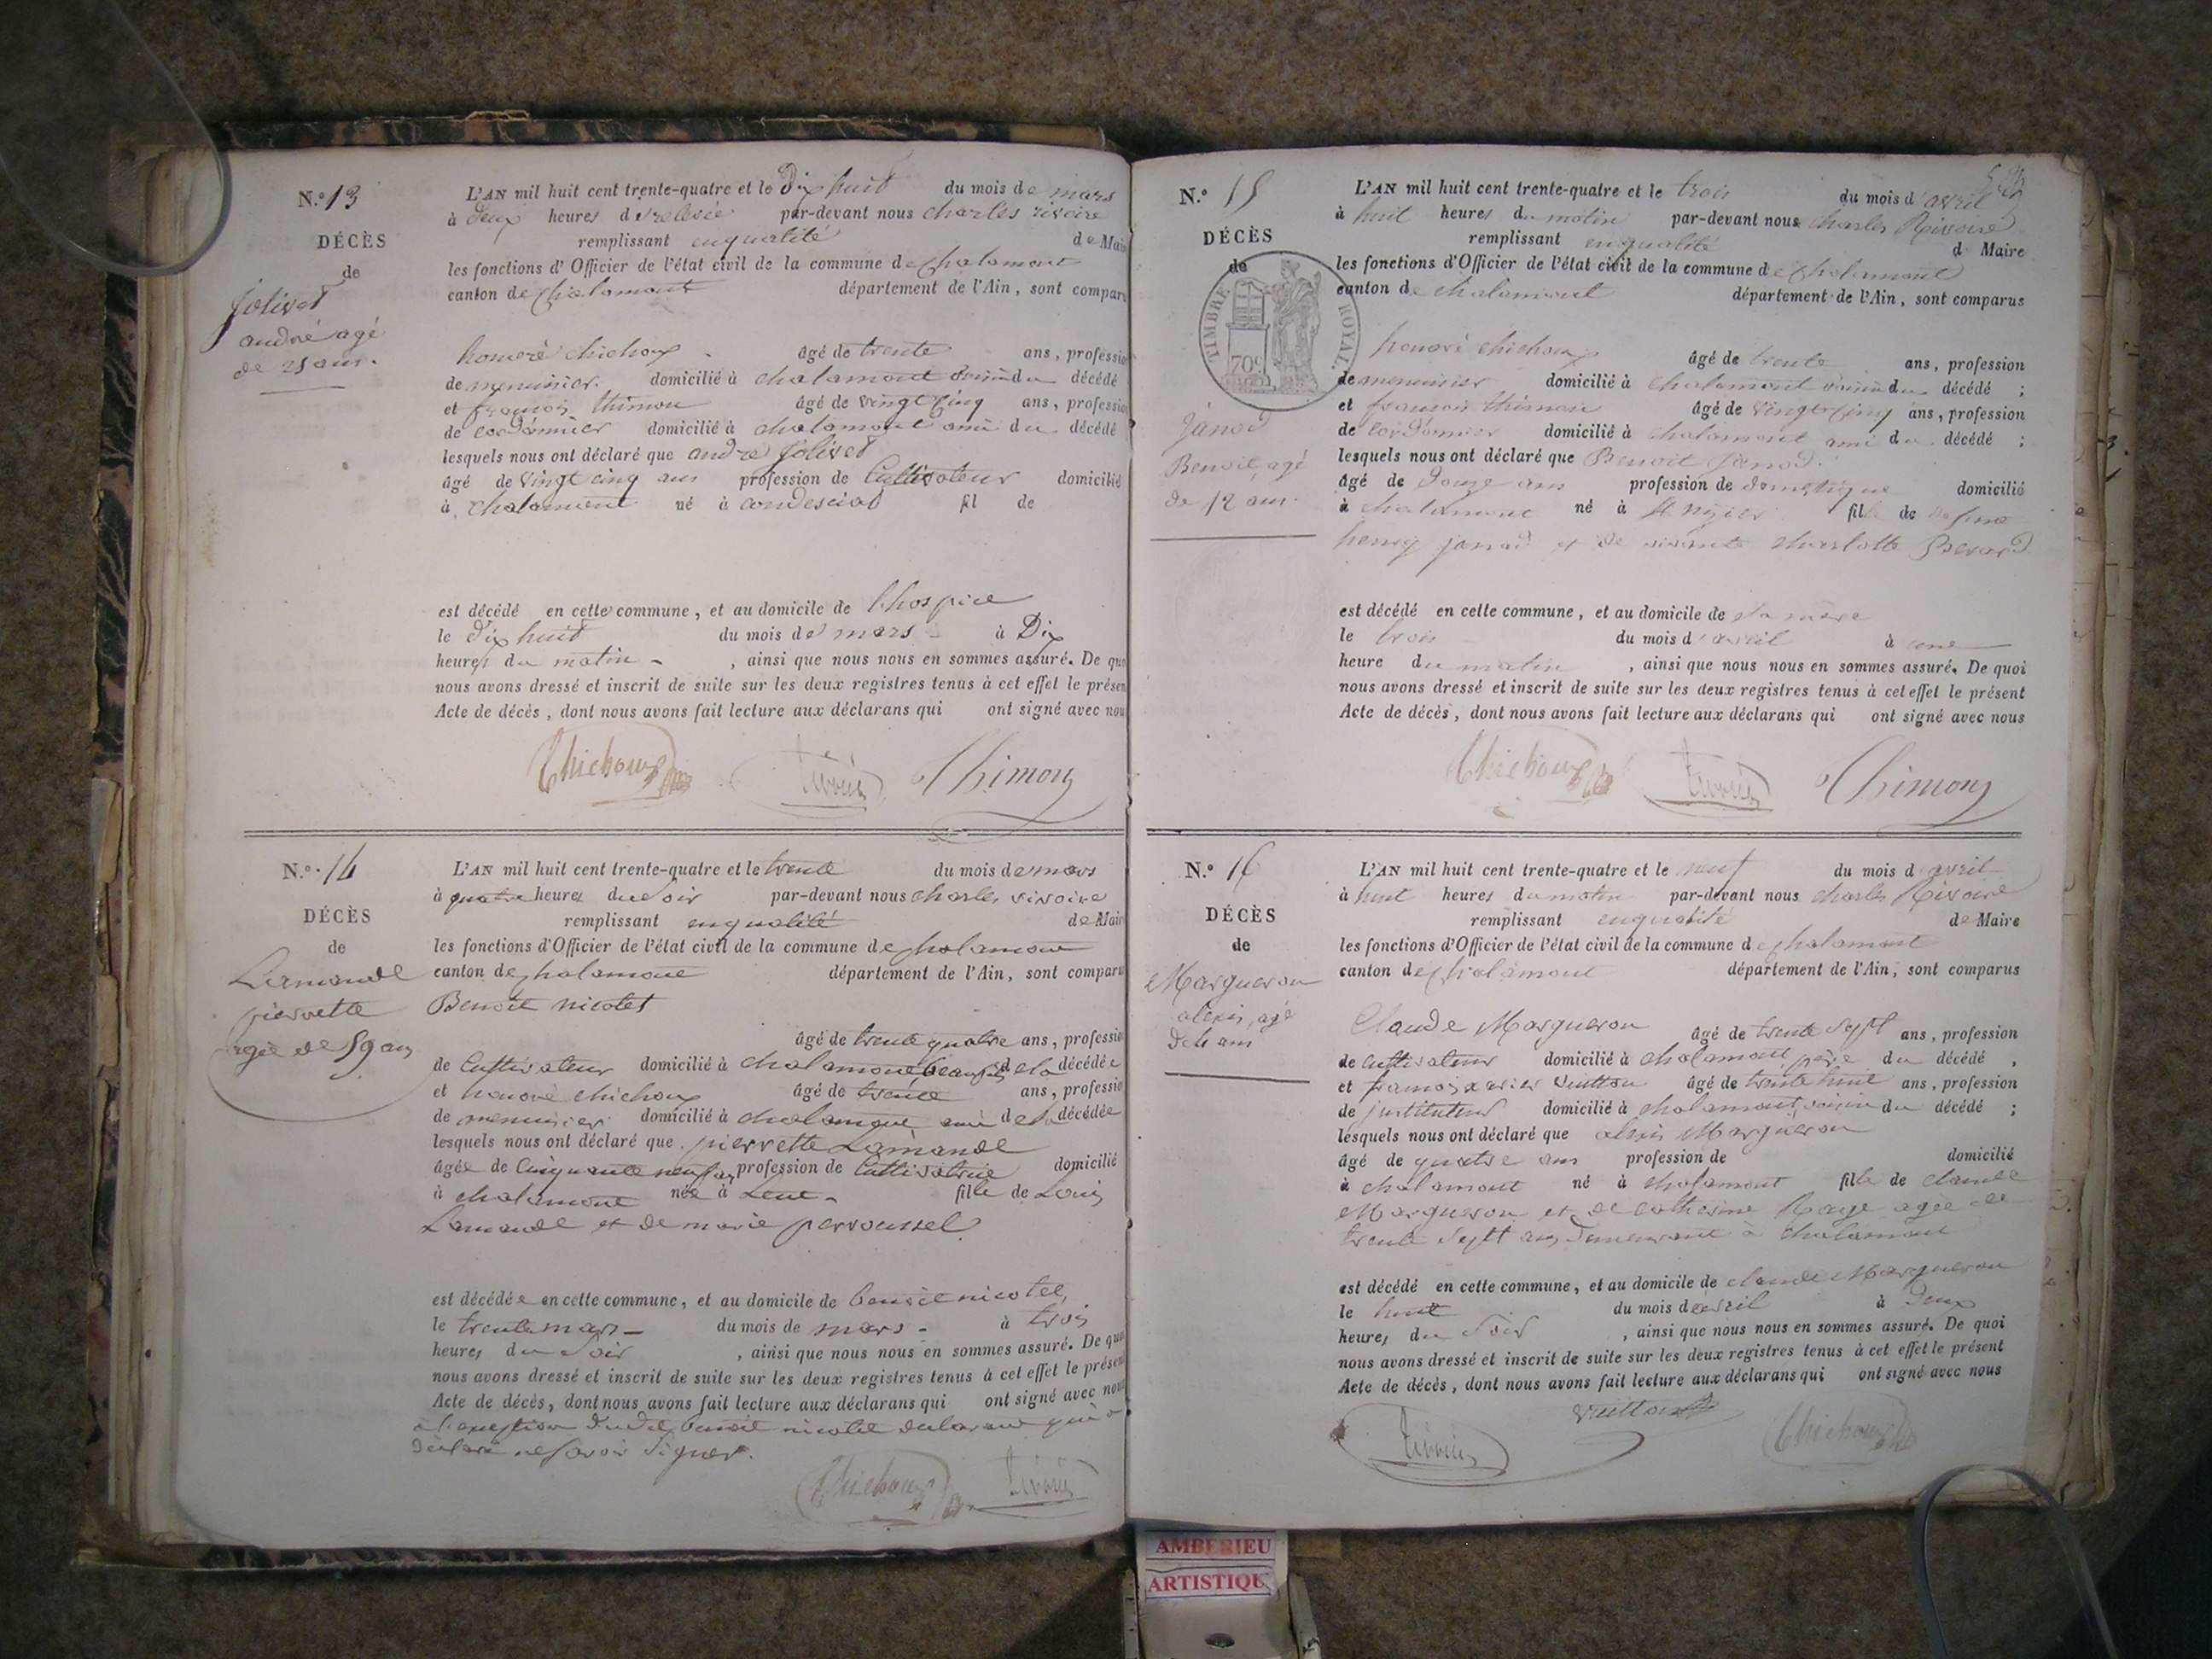 N.º 13
DÉCÈS
de
Jolivet
andré agé
de 25 ans.
L'AN mil huit cent trente-quatre et le Dix huit du mois de mars
à deux heures de relevée par-devant nous charles rivoire
remplissant en qualité de Mai
les fonctions d'Officier de l'état civil de la commune de chalamont
canton de chalamont département de l'Ain, sont compar
honoré chichoux âgé de trente ans, professi
de menuisier domicilié à chalamont voisin du décédé
et françois thimon âgé de vingt cinq ans, professi
de cordonnier domicilié à chalamont ami du décédé
lesquels nous ont déclaré que andré Jolivet
âgé de vingt cinq ans profession de Cultivateur domicilié
à chalamont né à condesciat fil de
est décédé en cette commune, et au domicile de l'hospice
le Dix huit du mois de mars à Dix
heures du matin, ainsi que nous nous en sommes assuré. De quo
nous avons dressé et inscrit de suite sur les deux registres tenus à cet effet le présen
Acte de décès, dont nous avons fait lecture aux déclarans qui ont signé avec nou
Chichoux rivoire Thimon
N.º 14
DÉCÈS
de
Lamande
pierrette
agée de 59 ans
L'AN mil huit cent trente-quatre et le trente du mois de mars
à quatre heures du Soir par-devant nous charles rivoire
remplissant en qualité de Mair
les fonctions d'Officier de l'état civil de la commune de chalamont
canton de chalamont département de l'Ain, sont comparu
Benoit nicolet
âgé de trente quatre ans, professi
de Cultivateur domicilié à chalamont beaufils de la décédée
et honoré chichoux âgé de trente ans, professi
de menuisier domicilié à chalamont ami de la décédée
lesquels nous ont déclaré que pierrette Lamande
âgée de Cinquante neuf ans profession de Cultivatrice domicilié
à chalamont née à Lent fille de Louis
Lamande et de marie perroussel
est décédée en cette commune, et au domicile de benoit nicolet
le trente mars du mois de mars à trois
heures du Soir, ainsi que nous nous en sommes assuré. De quo
nous avons dressé et inscrit de suite sur les deux registres tenus à cet effet le présen
Acte de décès, dont nous avons fait lecture aux déclarans qui ont signé avec nou
à l'exception dudit benoit nicolet declarant qui a
déclaré ne savoir signer.
Chichoux rivoire
N.º 15
DÉCÈS
de
TIMBRE ROYAL
70c
Janod
Benoit agé
de 12 ans
L'AN mil huit cent trente-quatre et le trois du mois d'avril
à huit heures du matin par-devant nous charles Rivoire
remplissant en qualité d Maire
les fonctions d'Officier de l'état civil de la commune de chalamont
canton de chalamont département de l'Ain, sont comparus
honoré chichoux âgé de trente ans, profession
de menuisier domicilié à chalamont voisin du décédé ;
et françois thimon âgé de vingt cinq ans, profession
de cordonnier domicilié à chalamont ami du décédé ;
lesquels nous ont déclaré que Benoit Janod
âgé de Douze ans profession de domestique domicilié
à chalamont né à St nizier fils de defunt
henry janod et de vivante charlotte Bevard
est décédé en cette commune, et au domicile de sa mère
le trois du mois d'avril à une
heure du matin, ainsi que nous nous en sommes assuré. De quoi
nous avons dressé et inscrit de suite sur les deux registres tenus à cet effet le présent
Acte de décès, dont nous avons fait lecture aux déclarans qui ont signé avec nous
Chichoux rivoire Thimon
N.º 16
DÉCÈS
de
Margueron
alexis, agé
de 4 ans
L'AN mil huit cent trente-quatre et le neuf du mois d'avril
à huit heures du matin par-devant nous charles Rivoire
remplissant en qualité de Maire
les fonctions d'Officier de l'état civil de la commune de chalamont
canton de chalamont département de l'Ain, sont comparus
Claude Margueron âgé de trente Sept ans, profession
de Cultivateur domicilié à chalamont père du décédé ,
et françois xavier Vuitton âgé de trente huit ans, profession
de instituteur domicilié à chalamont voisin du décédé ;
lesquels nous ont déclaré que alexis Margueron
âgé de quatre ans profession de domicilié
à chalamont né à chalamont fils de claude
Margueron et de catherine Roage agée de
trente Sept ans demeurant à chalamont
est décédé en cette commune, et au domicile de claude Margueron
le huit du mois d'avril à Deux
heures du Soir, ainsi que nous nous en sommes assuré. De quoi
nous avons dressé et inscrit de suite sur les deux registres tenus à cet effet le présent
Acte de décès, dont nous avons fait lecture aux déclarans qui ont signé avec nous
rivoire Vuitton Chichoux
AMBERIEU
ARTISTIQUE